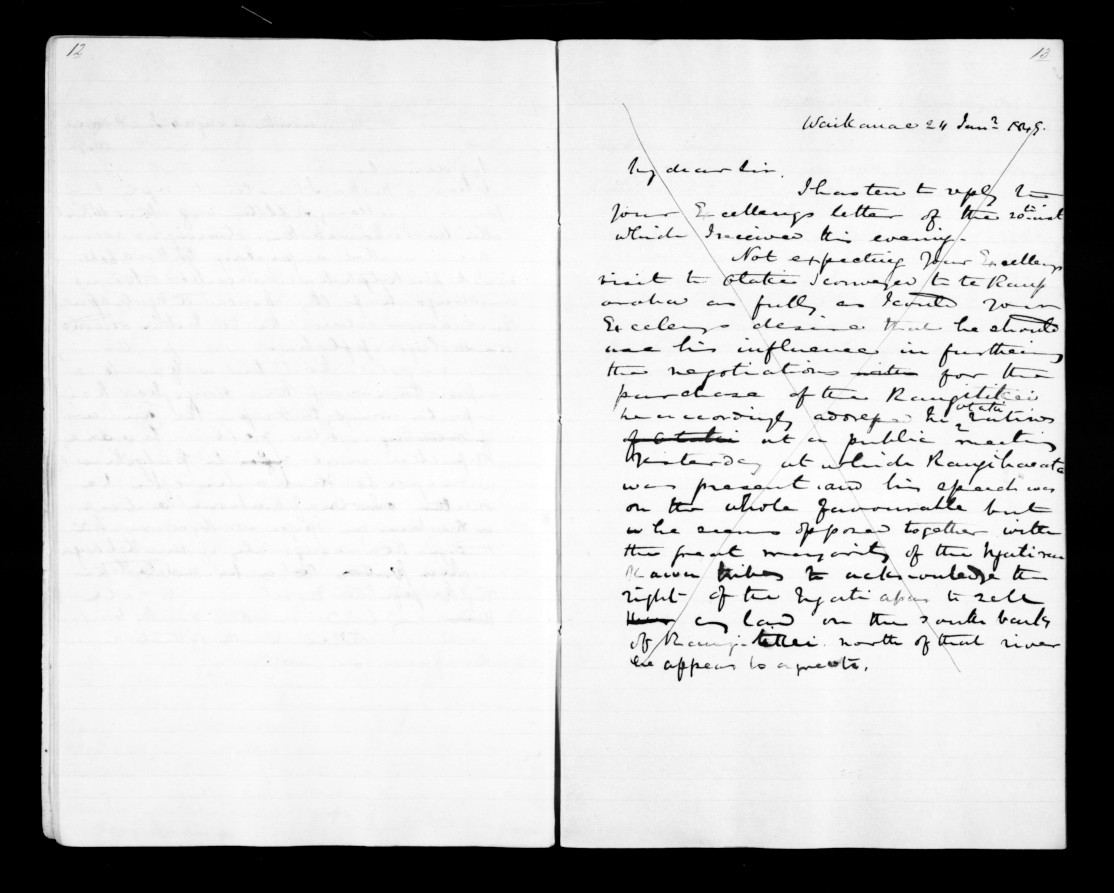 12
13
Waikanae 24 Jany 1849.
My dear Sir,
I hasten to reply to
your Excellencys letter of the 20th inst
which I received this evening.
Not expecting your Excellencys
visit to Otaki I conveyed to te Rau
as fully as I could your
Excellencys desire that he should
use his influence in furthering
the negotiations for the
purchase of the Rangitikei
he accordingly addressed the Otaki natives
of Otaki at a public meeting
yesterday at which Rangihaeata
was present and his speech was
on the whole favourable but
he seems opposed together with
the great majority of the Ngatirau
kawa tribes to acknowledge the
right of the Ngatiapa to sell
any land on the south bank
of Rangitikei north of that river
he appears to agree to.